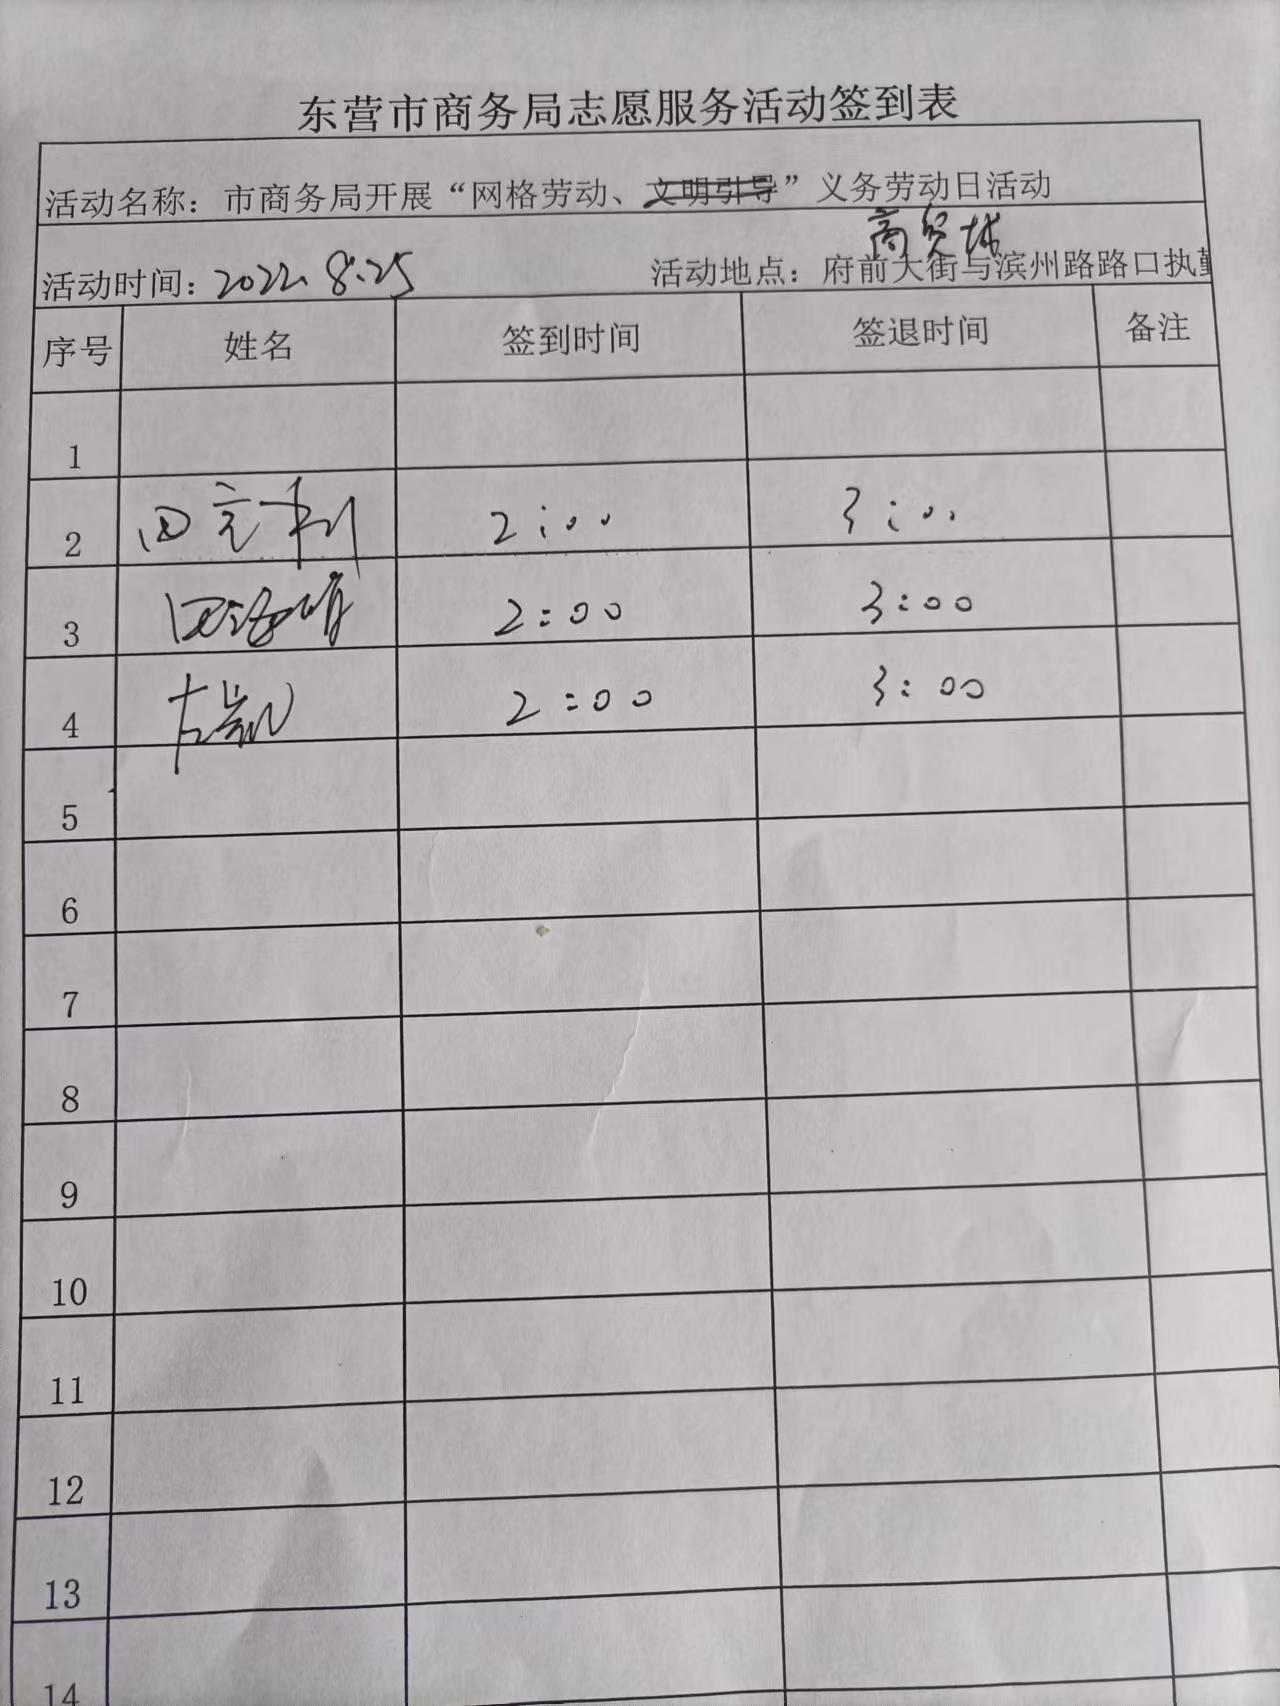 东营市商务局志愿服务活动签到表
活动名称：市商务局开展“网格劳动、文明引导”义务劳动日活动
商贸城
活动时间：2022.8.25 活动地点：府前大街与滨州路路口执勤
序号 姓名 签到时间 签退时间 备注
1
2 田立利 2:00 3:00
3 2:00 3:00
4 2:00 3:00
5
6
7
8
9
10
11
12
13
14